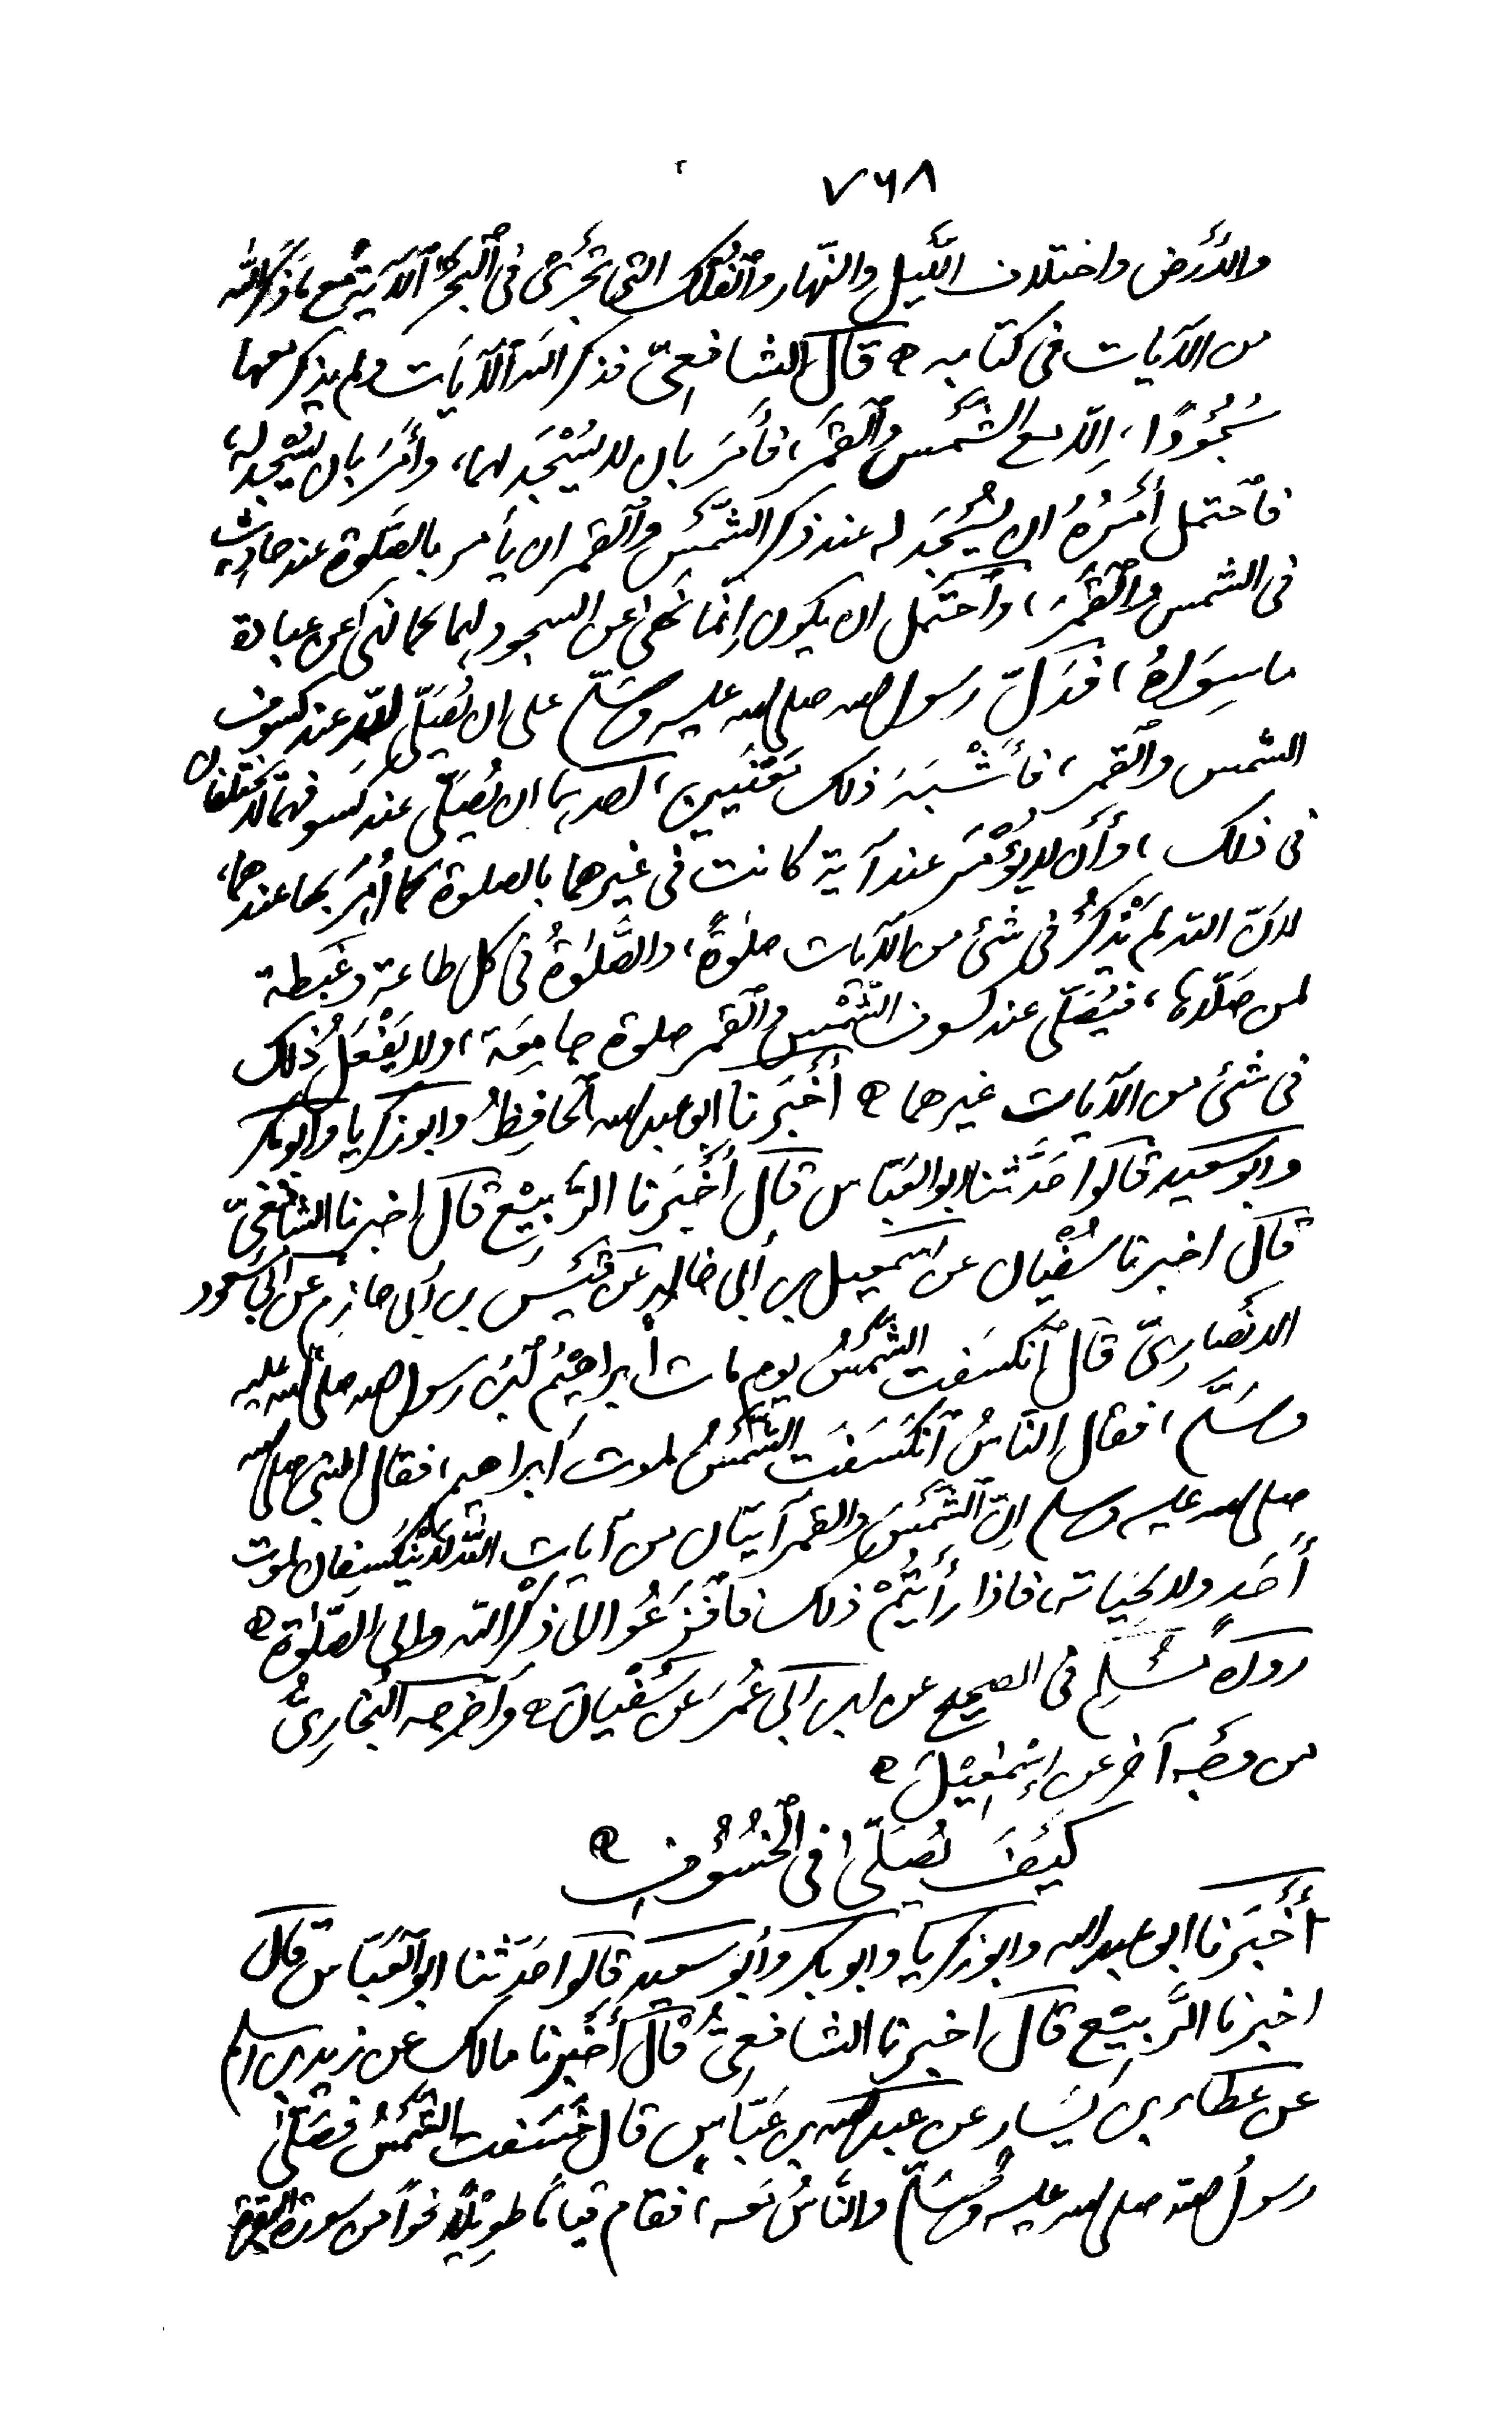 ٧٦٨
والأرض واختلاف الليل والنهار والفلك التي تجري في البحر الآية مع ما ذكر الله
من الآيات في كتابه ه قال الشافعيّ فذكر الله الآيات ولم يذكر معها
سُجُودًا، إلّا مع الشمس والقمر، فأمَرَ بان لا يُسْجَد لهما، وأمَرَ بان يُسْجد له،
فاحتمل أَمْرُهُ ان يُسْجَد له عند ذكر الشمس والقمر ان يأمر بالصلوة عند حادث
في الشمس والقمر، واحتمل ان يكون إنّما نهى عن السجود لهما كما نهى عن عبادة
ما سِوَاهُ، فدَلَّ رسول الله صلى الله عليه وسلّم على ان يُصَلّى لله عند كسوف
الشمس والقمر، فأشْبَهَ ذلك معنَيين، احدهما ان يُصَلّى عند كسوفهما لا يختلفان
في ذلك، وأن لا يُؤْمَر عند آية كانت في غيرهما بالصلوة كما أُمِرَ بها عندهما،
لانّ الله لم يَذْكُرْ في شئ من الآيات صلوةً، والصَّلوةُ في كل طاعة وغبطة
لمن صَلّاها، فيُصَلّى عند كسوف الشمس والقمر صلوة جامِعَة، ولا يَفْعَل ذلك
في شئ من الآيات غيرهما ه أَخْبَرنا ابو عبد الله الحافِظُ وابو زكريا وابو بكر
وابو سعيد قالوا حَدَّثنا ابو العَبّاس قال أَخْبَرنا الرَّبيْع قال اخبرنا الشافعيّ
قال اخبرنا سُفْيان عن اسمعيل بن أبي خالد عن قَيْس بن أبي حازم عن ابي مسعود
الانْصاريّ قال انكسَفت الشمسُ يوم مات ابراهيْمُ ابْنُ رسول الله صلى الله عليه
وسَلَّم، فقال النّاسُ انكسَفَت الشمسُ لموت ابراهيم، فقال النبي صلى الله
صلى الله عليه وسلم إنّ الشَّمْسَ والقمر آيتان من آيات الله لا يَنكَسِفان لموت
أَحَد ولا لحَياته، فاذا رأيْتُمْ ذلك فافْزَعُوا الى ذِكْر الله والى الصَّلوة ه
رواهُ مُسْلِم في الصحيح عن ابن ابي عُمَر عن سُفْيان ه واخرجه البُخاريُّ
من وَجْه آخر عن إسْمعيْلَ ه
كَيْفَ يُصَلّى في الخُسُوْف ه
أَخْبَرنا ابو عبد الله وابو زكريا وابو بكر وأبو سعيد قالوا حَدّثنا ابو العَبّاس قال
اخبرنا الرَّبيْع قال اخبرنا الشافعيُّ قال أَخْبرنا مالك عن زيد بن اسلم
عن عطاء بن يَسَار عن عبد الله بن عَبّاس قال خَسَفت الشَّمْسُ فصَلّى
رسولُ الله صلى الله عليه وسَلَّم والنّاسُ مَعه، فقام قياماً طويْلاً نحواً من سورة البقرة